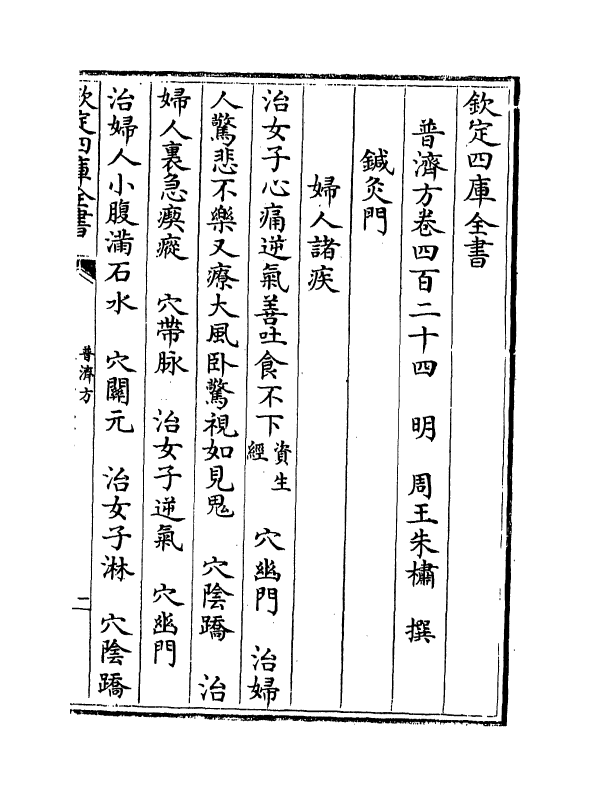 欽定四庫全書
普濟方卷四百二十四　明　周王朱橚　撰
鍼灸門
婦人諸疾
治女子心痛逆氣善吐食不下資生經　穴幽門　治婦
人驚悲不樂又療大風卧驚視如見鬼　穴陰蹻　治
婦人裏急瘈瘲　穴帶脉　治女子逆氣　穴幽門
治婦人小腹滿石水　穴關元　治女子淋　穴陰蹻
欽定四庫全書
普濟方